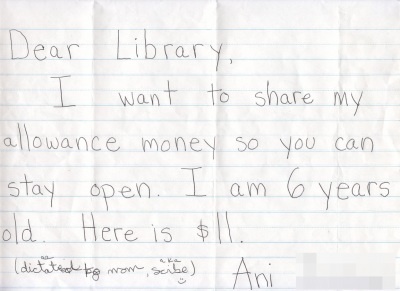 Dear Library,
I want to share my
allowance money so you can
stay open. I am 6 years
old. Here is $11.
(dictated mom, aka scribe)
Ani